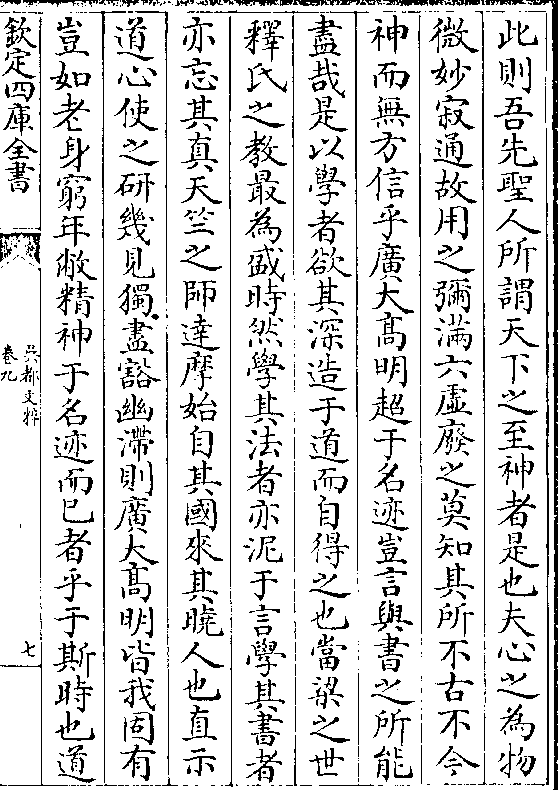 此則吾先聖人所謂天下之至神者是也夫心之為物
微妙寂通故用之彌滿六虛廢之莫知其所不古不今
神而無方信乎廣大髙明超于名迹豈言與書之所能
盡哉是以學者欲其深造于道而自得之也當梁之世
釋氏之教最為盛時然學其法者亦泥于言學其書者
亦忘其真天竺之師達摩始自其國來其曉人也直示
道心使之研幾見獨盡豁幽滯則廣大髙明皆我固有
豈如老身窮年敝精神于名迹而已者乎于斯時也道
欽定四庫全書
吳都文粹
卷九
七